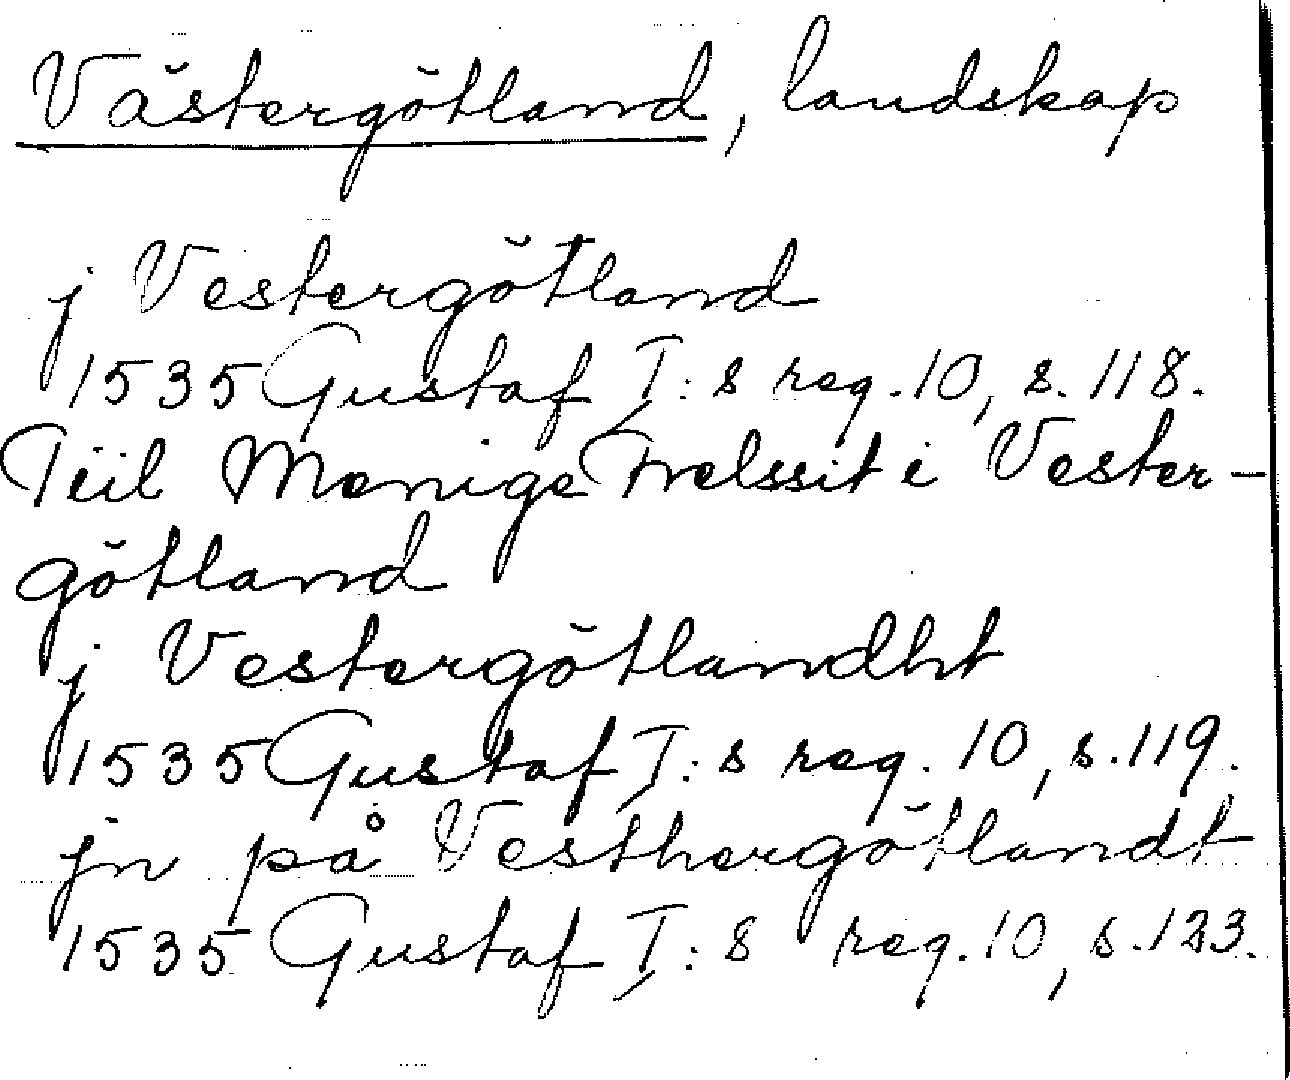 Västergötland, landskap
j Vestergötland
1535 Gustaf I:s reg. 10, s. 118.
Tiil Menige Frelssit i Vester-
götland
j Vestergötlandht
1535 Gustaf I:s reg. 10, s. 119.
jn på Vesthergötlandt
1535 Gustaf I:s reg. 10, s. 123.